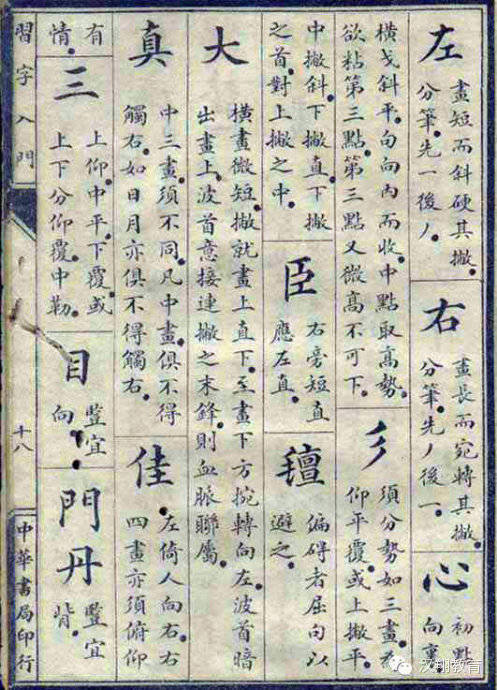 左
畫短而斜硬其撇。
分筆先一後丿。
右
畫長而宛轉其撇。
分筆先丿後一。
心
初點
向裏
橫戈斜平。句向內而收。中點取高勢。
欲粘第三點。第三點又微高不可下。
彡
須分勢如三畫有
仰平覆。或上撇平
中撇斜。下撇直。下撇
之首。對上撇之中。
臣
右旁短直
應左直。
偏碍者屈句以
避之。
大
橫畫微短。撇就畫上直下。至畫下方捥轉向左。波首暗
出畫上。波首意接連撇之末鋒。則血脈聯屬。
真
中三畫須不同。凡中畫。俱不得
觸右。如日月亦俱不得觸右。
佳
左倚人向右。右
四畫亦須俯仰
有
情。
三
上仰。中平。下覆。或
上下分仰覆。中勒。
目
豎宜
向。
門丹
豎宜
背。
習字入門
十八
中華書局印行
汉翔教育